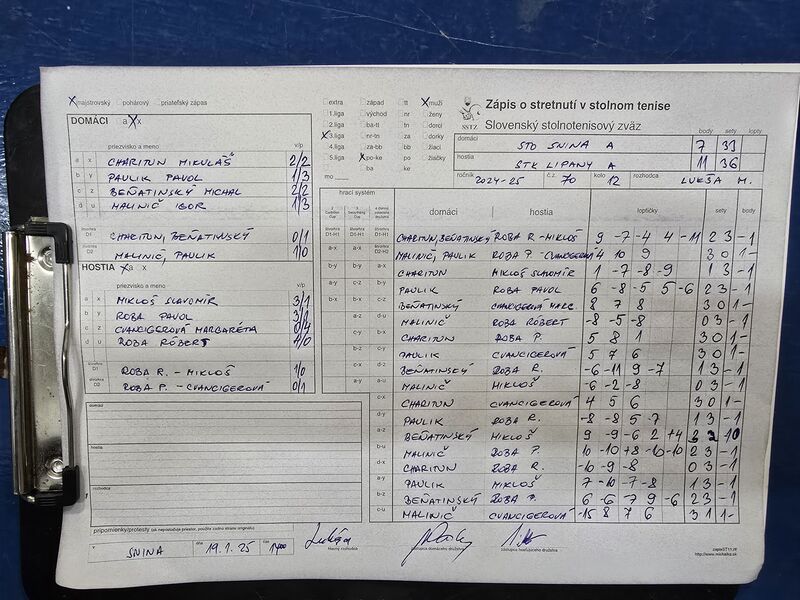 x majstrovský pohárový priateľský zápas
extra západ tt x muži
1.liga východ nr ženy
2.liga ba-tt tn dorci
x 3.liga nr-tn za dorky
4.liga za-bb bb žiaci
5.liga x po-ke po žiačky
ba ke
mo
Zápis o stretnutí v stolnom tenise
SSTZ Slovenský stolnotenisový zväz
body sety lopty
domáci STO SNINA A 7 33
hostia STK LIPANY A 11 36
ročník 2024-25 č.z. 70 kolo 12 rozhodca LUKŠA M.
DOMÁCI a x
priezvisko a meno v/p
a x CHARITUN MIKULÁŠ 2/2
b y PAULIK PAVOL 1/3
c z BEŇATINSKÝ MICHAL 2/2
d u MALINIČ IGOR 1/3
štvorhra D1 CHARITUN, BEŇATINSKÝ 0/1
štvorhra D2 MALINIČ, PAULIK 1/0
HOSTIA x a x
priezvisko a meno v/p
a x MIKLOŠ SLAVOMÍR 3/1
b y ROBA PAVOL
c z CVANCIGEROVÁ MARGARÉTA 0/4
d u ROBA RÓBERT 4/0
štvorhra D1 ROBA R. - MIKLOŠ 1/0
štvorhra D2 ROBA P. - CVANCIGEROVÁ 0/1
hrací systém
domáci hostia loptičky sety body
CHARITUN, BEŇATINSKÝ ROBA R - MIKLOŠ 9 -7 -4 4 -11 2 3 -1
MALINIČ, PAULIK ROBA P. - CVANCIGEROVÁ 4 10 9 3 0 1-
CHARITUN MIKLOŠ SLAVOMÍR 1 -7 -8 -9 1 3 -1
PAULIK ROBA PAVOL 6 -8 -5 5 -6 2 3 -1
BEŇATINSKÝ CVANCIGEROVÁ MARG. 8 7 8 3 0 1-
MALINIČ ROBA RÓBERT -8 -5 -8 0 3 -1
CHARITUN ROBA P. 5 8 1 3 0 1-
PAULIK CVANCIGEROVÁ 5 7 6 3 0 1-
BEŇATINSKÝ ROBA R. -6 -11 9 -7 1 3 -1
MALINIČ MIKLOŠ -6 -2 -8 0 3 -1
CHARITUN CVANCIGEROVÁ 4 5 6 3 0 1-
PAULIK ROBA R. -8 -8 5 -7 1 3 -1
BEŇATINSKÝ MIKLOŠ 9 -9 -6 2 +4 3 2 10
MALINIČ ROBA P. 10 -10 +8 -10 -10 2 3 -1
CHARITUN ROBA R. -10 -9 -8 0 3 -1
PAULIK MIKLOŠ 7 -10 -7 -8 1 3 -1
BEŇATINSKÝ ROBA P. 6 -6 -7 9 -6 2 3 -1
MALINIČ CVANCIGEROVÁ -15 8 7 6 3 1 1-
domáci
hostia
rozhodca
pripomienky/protesty (ak nepostačuje priestor, použite zadnú stranu originálu)
v SNINA dňa 19.1.25 čas
hlavný rozhodca
zástupca domáceho družstva
zástupca hosťujúceho družstva
http://www.michalka.sk